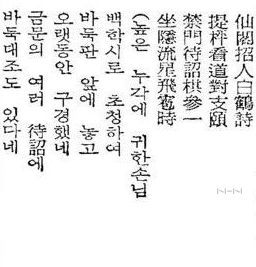 仙閣招人白鶴詩
提枰看道對支頤
禁門待詔棋參一
坐隱流星飛雹時
(높은 누각에 귀한손님
백학시로 초청하여
바둑판 앞에 놓고
오랫동안 구경했네
금문의 여러 待詔에
바둑대조도 있다네